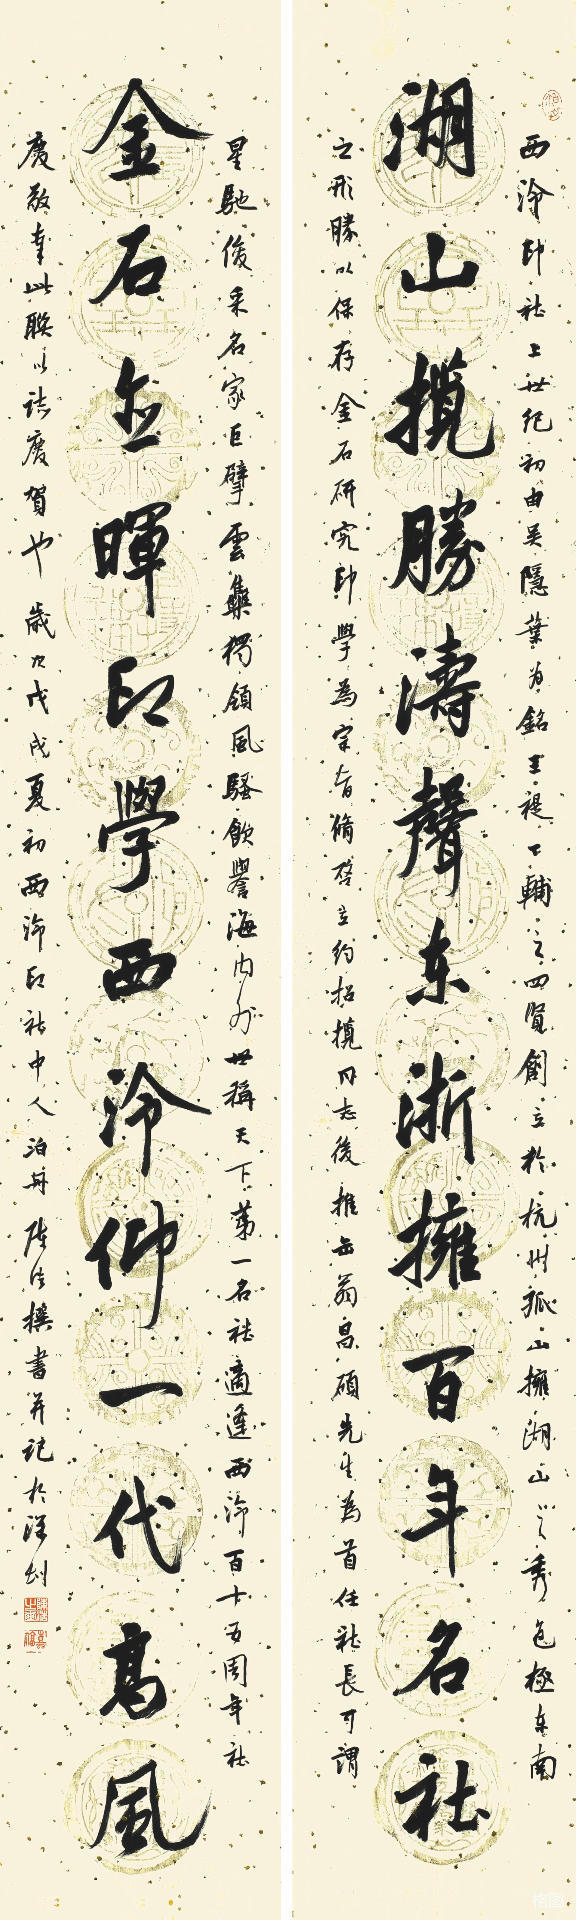 西泠印社上世紀初由吳隱葉為銘王禔丁輔之四賢創立於杭州孤山擁湖山之秀色極东南
湖山攬勝濤聲东浙擁百年名社
之形勝以保存金石研究印學為宗旨脩啓立約招攬同志後推缶翁昌碩先生為首任社長可謂
星馳俊采名家巨擘雲集獨領風騷飲譽海内外世稱天下第一名社適逢西泠百十五周年社
金石 暉印學西泠仰一代高風
慶敬奉此聯以誌慶賀也 歲次戊戌夏初西泠印社中人泊舟 陳 撰書并記於深圳